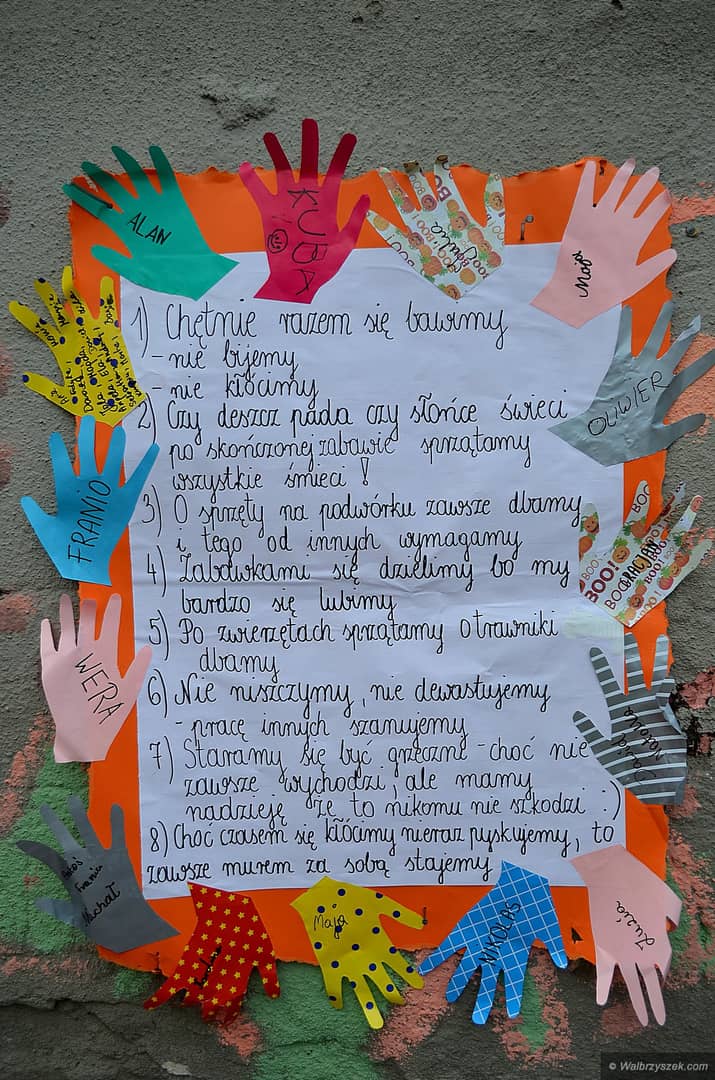 ALAN
KUBA
Maja
1) Chętnie razem się bawimy
- nie bijemy
- nie kłócimy
2) Czy deszcz pada czy słońce świeci
po skończonej zabawie sprzątamy
wszystkie śmieci !
3) O sprzęty na podwórku zawsze dbamy
i tego od innych wymagamy
4) Zabawkami się dzielimy bo my
bardzo się lubimy
5) Po zwierzętach sprzątamy o trawniki
dbamy
6) Nie niszczymy, nie dewastujemy
- pracę innych szanujemy
7) Staramy się być grzeczni - choć nie
zawsze wychodzi, ale mamy
nadzieję że to nikomu nie szkodzi :)
8) Choć czasem się kłócimy nieraz pyskujemy, to
zawsze murem za sobą stajemy
OLIWIER
FRANIO
BOO!
WERA
Natalia
Franiu
Michał
Maja
NIKOLAS
Zuzia
© Walbrzyszek.com